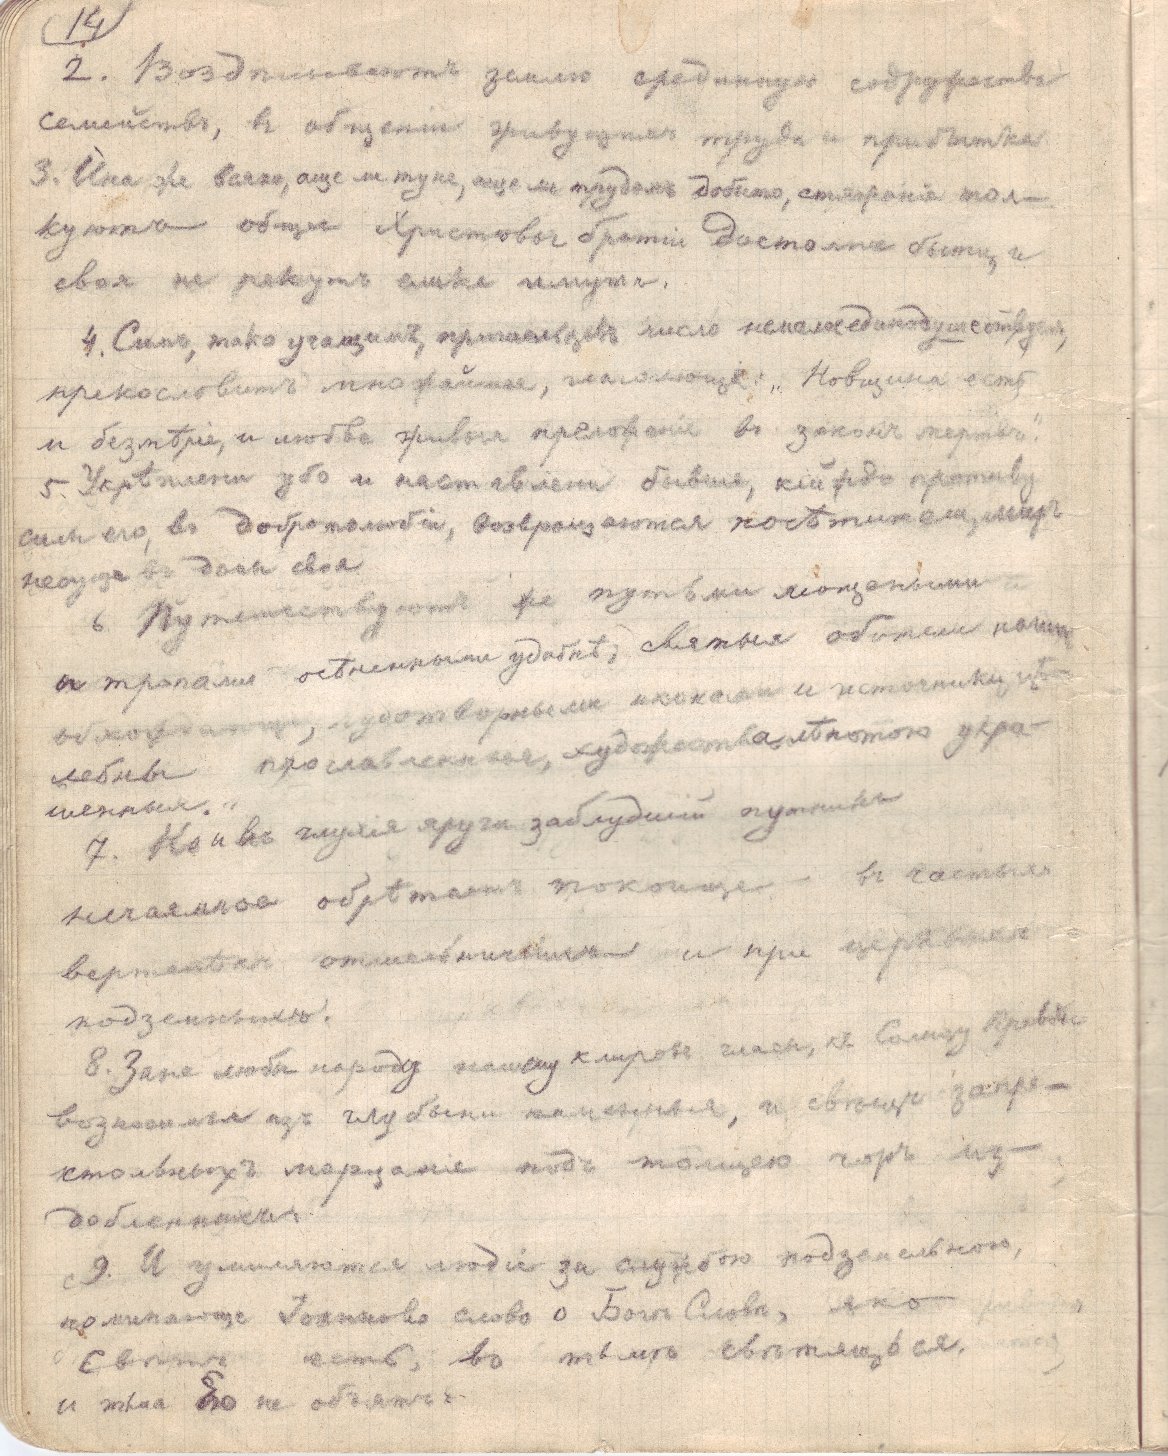 14
2. Воздѣлываютъ землю срединную содружества
семействъ, въ общеніи живущихъ труда и прибытка
3. Ина же всяко, аще ли туне, аще ли трудомъ добыто, стяжаніе тол-
куютъ обще Христовы братіи достоитъ быти, и
своя не рекутъ елика имутъ.
4. Симъ, тако учащимъ, пришельцевъ число немалое единодушествуетъ,
прекословитъ множайшее, глаголюще: „Новщина есть
и безмѣріе, и любве живыя преложеніе въ законъ мертвъ".
5. Укрѣплени убо и наставлени бывше, кійждо противу
силы его, въ добротолюбіи, возвращаются посѣтители, миръ
несуще въ домы своя
6 Путешествуютъ же путьми мощеными
и тропами осѣненными удобнѣ, святыя обители наши
обходяще, чудотворными иконами и источники цѣ-
лебны прославленныя, художества лѣпотою укра-
шенныя."
7. Но и въ глухія яруги заблудшій путникъ
нечаянное обрѣтаетъ покоище въ частыхъ
вертепѣхъ отшельничьихъ и при церквахъ
подземныхъ.
8. Зане любы народу нашему клировъ гласы, къ Солнцу Правды
возносимыя изъ глубины каменныя, и свѣщъ запре-
стольныхъ мерцаніе подъ толщею горъ из-
добленныхъ.
9. И умиляются людіе за службою подземельною,
поминающе Іоанново слово о Богѣ Словѣ, яко
Свѣтъ есть, во тьмѣ свѣтящься,
и тьма Его не объятъ